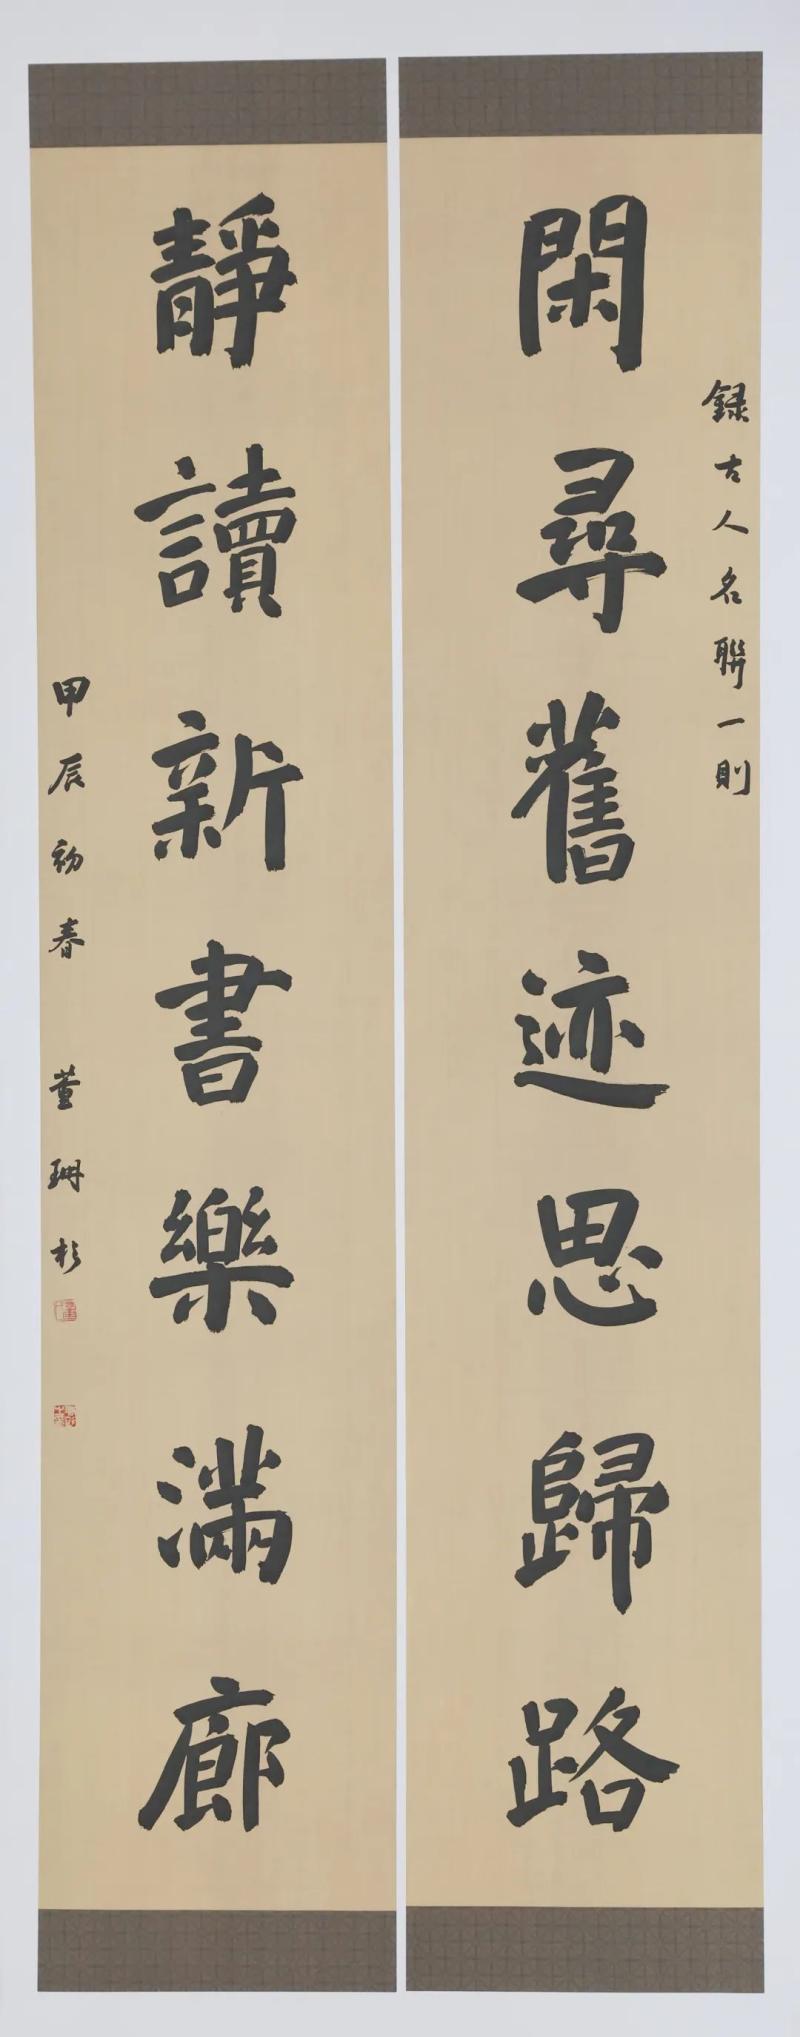 録古人名聯一則
閑尋舊迹思歸路
靜讀新書樂滿廊
甲辰初春 董珊杉